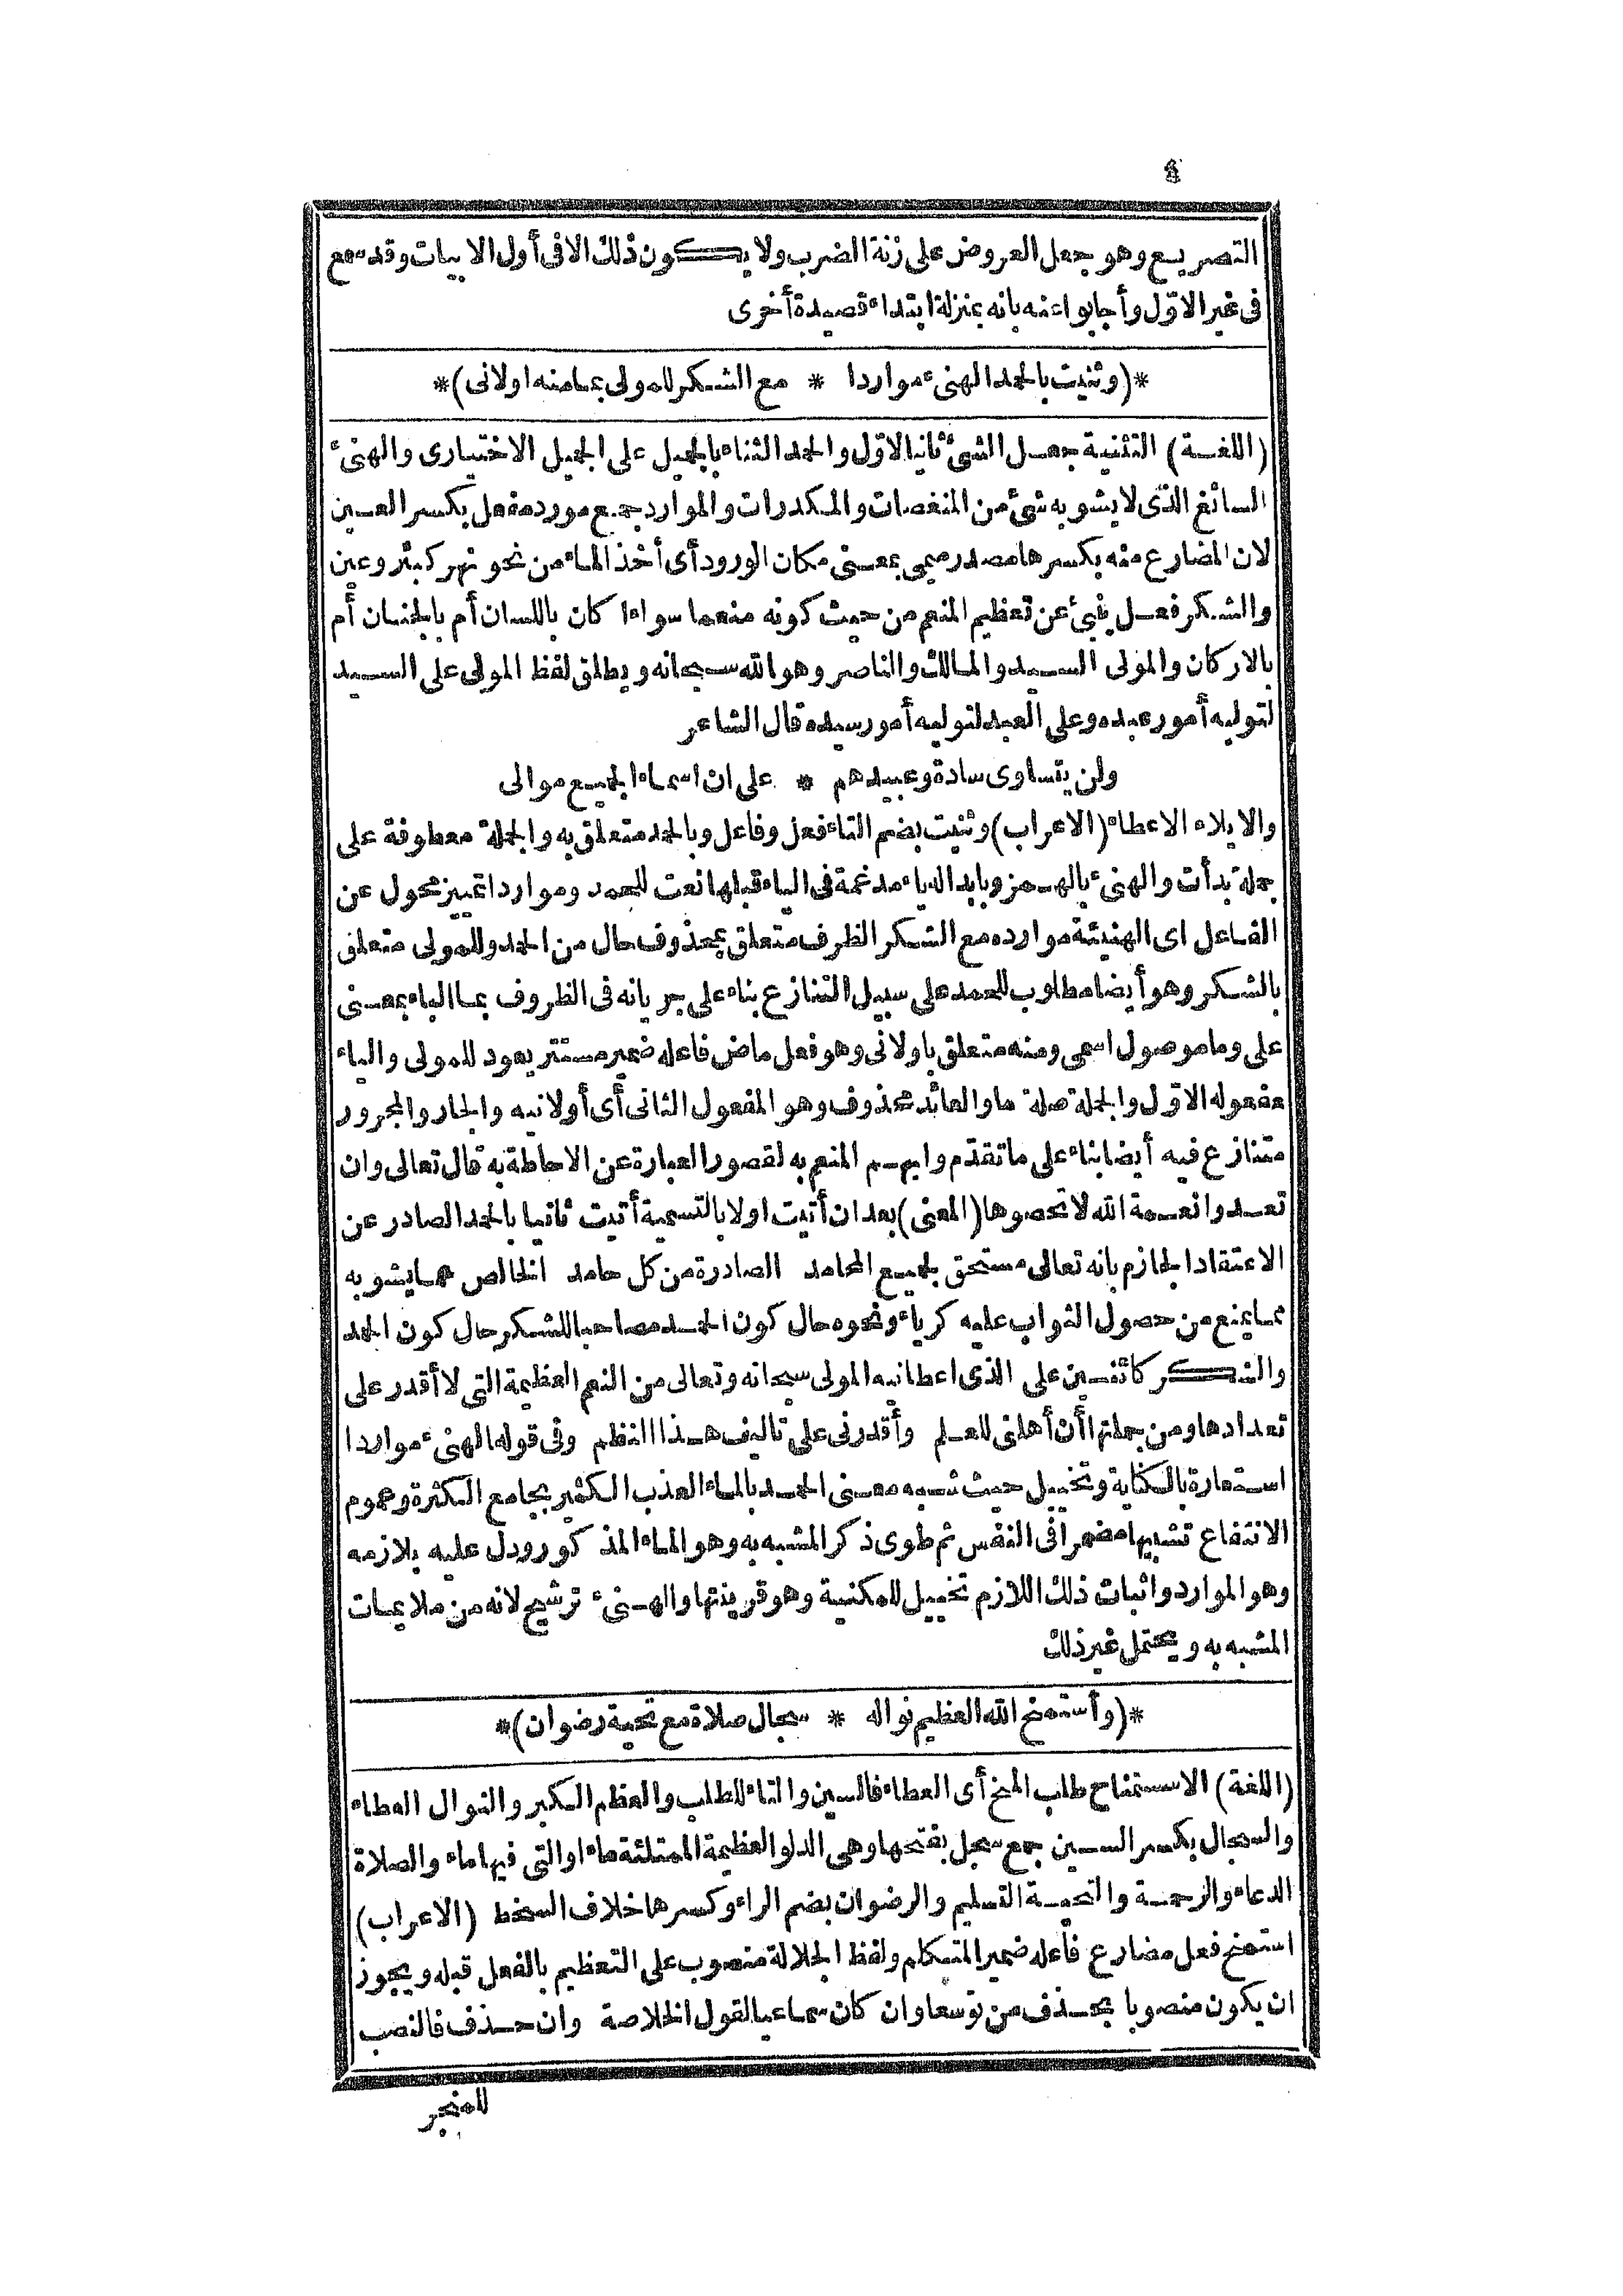 ٤
التصريع وهو جعل العروض على زنة الضرب ولا يكون ذلك الا فى أول الابيات وقد سمع
فى غير الاوّل وأجابوا عنه بانه بمنزلة ابتداء قصيدة أخرى
*(وثنيت بالحمد الهنىء مواردا * مع الشكر للمولى بما منه اولانى)*
(اللغة) التثنية جعل الشئ ثانيا لاوّل والحمد الثناء بالجميل على الجميل الاختيارى والهنىء
السائغ الذى لا يشوبه شئ من المنغصات والمكدرات والموارد جمع مورد مفعل بكسر العين
لان المضارع منه بكسرها مصدر ميمى بمعنى مكان الورود أى أخذ الماء من نحو نهر كبئر وعين
والشكر فعل ينبئ عن تعظيم المنعم من حيث كونه منعما سواء كان باللسان أم بالجنان أم
بالاركان والمولى السيد والمالك والناصر وهو الله سبحانه ويطلق لفظ المولى على السيد
لتوليه أمور عبده وعلى العبد لتوليه أمور سيده قال الشاعر
ولن يتساوى سادة وعبيدهم * على ان اسماء الجميع موالى
والايلاء الاعطاء (الاعراب) وثنيت بضم التاء فعل وفاعل وبالحمد متعلق به والجملة معطوفة على
جملة بدأت والهنىء بالهمز وبابداله ياء مدغمة فى الياء قبلها نعت للحمد ومواردا تمييز محول عن
الفاعل اى الهنيئة موارده مع الشكر الظرف متعلق بمحذوف حال من الحمد وللمولى متعلق
بالشكر وهو أيضا مطلوب للحمد على سبيل التنازع بناء على جريانه فى الظروف بما الباء بمعنى
على وما موصول اسمى ومنه متعلق باولانى وهو فعل ماض فاعله ضمير مستتر يعود للمولى والياء
مفعوله الاوّل والجملة صلة ما والعائد محذوف وهو المفعول الثانى أى أولانيه والجار والمجرور
متنازع فيه أيضا بناء على ما تقدّم وابهم المنعم به لقصور العبارة عن الاحاطة به قال تعالى وان
تعدوا نعمة الله لا تحصوها (المعنى) بعد ان أتيت اولا بالتسمية أتيت ثانيا بالحمد الصادر عن
الاعتقاد الجازم بانه تعالى مستحق لجميع المحامد الصادرة من كل حامد الخالص مما يشوبه
مما يمنع من حصول الثواب عليه كرياء ونحوه حال كون الحمد مصاحبا للشكر حال كون الحمد
والشكر كائنين على الذى اعطانيه المولى سبحانه وتعالى من النعم العظيمة التى لا أقدر على
تعدادها ومن جملتها أن أهلنى للعلم وأقدرنى على تاليف هذا النظم وفى قوله الهنىء مواردا
استعارة بالكناية وتخييل حيث شبه معنى الحمد بالماء العذب الكثير بجامع الكثرة وعموم
الانتفاع تشبيها مضمرا فى النفس ثم طوى ذكر المشبه به وهو الماء المذكور ودل عليه بلازمه
وهو الموارد واثبات ذلك اللازم تخييل للمكنية وهو قرينتها والهنىء ترشيح لانه من ملايمات
المشبه به ويحتمل غير ذلك
*(وأستمنح الله العظيم نواله * سجال صلاة مع تحية رضوان)*
(اللغة) الاستمناح طلب المنح أى العطاء فالسين والتاء للطلب والعظم الكبر والنوال العطاء
والسجال بكسر السين جمع سجل بفتحها وهى الدلو العظيمة الممتلئة ماء او التى فيها ماء والصلاة
الدعاء والرحمة والتحية التسليم والرضوان بضم الراء وكسرها خلاف السخط (الاعراب)
استمنح فعل مضارع فاعله ضمير المتكلم ولفظ الجلالة منصوب على التعظيم بالفعل قبله ويجوز
ان يكون منصوبا بحذف من توسعا وان كان سماعيا لقول الخلاصة وان حذف فالنصب
للمنجر